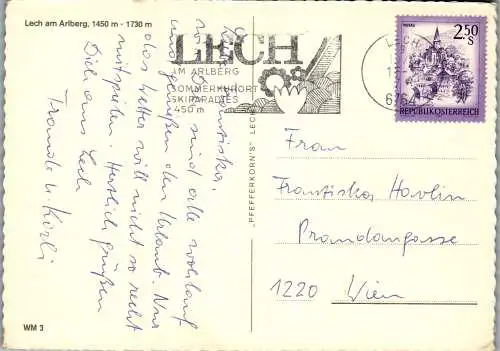 Lech am Arlberg, 1450 m - 1730 m
LECH
AM ARLBERG
SOMMERKURORT
SKIPARADIES
1450 m
LECH
6764
2.50
S
REPUBLIK ÖSTERREICH
Liebe Franziska,
wir sind alle wohlauf
und genießen den Urlaub. Nur
das Wetter will nicht so recht
mitspielen. Herzlich grüßen
Dich aus Lech
Traude u. Karli
"PFEFFERKORN'S" LECH
Frau
Franziska Havlin
Prandaugasse
1220 Wien
WM 3